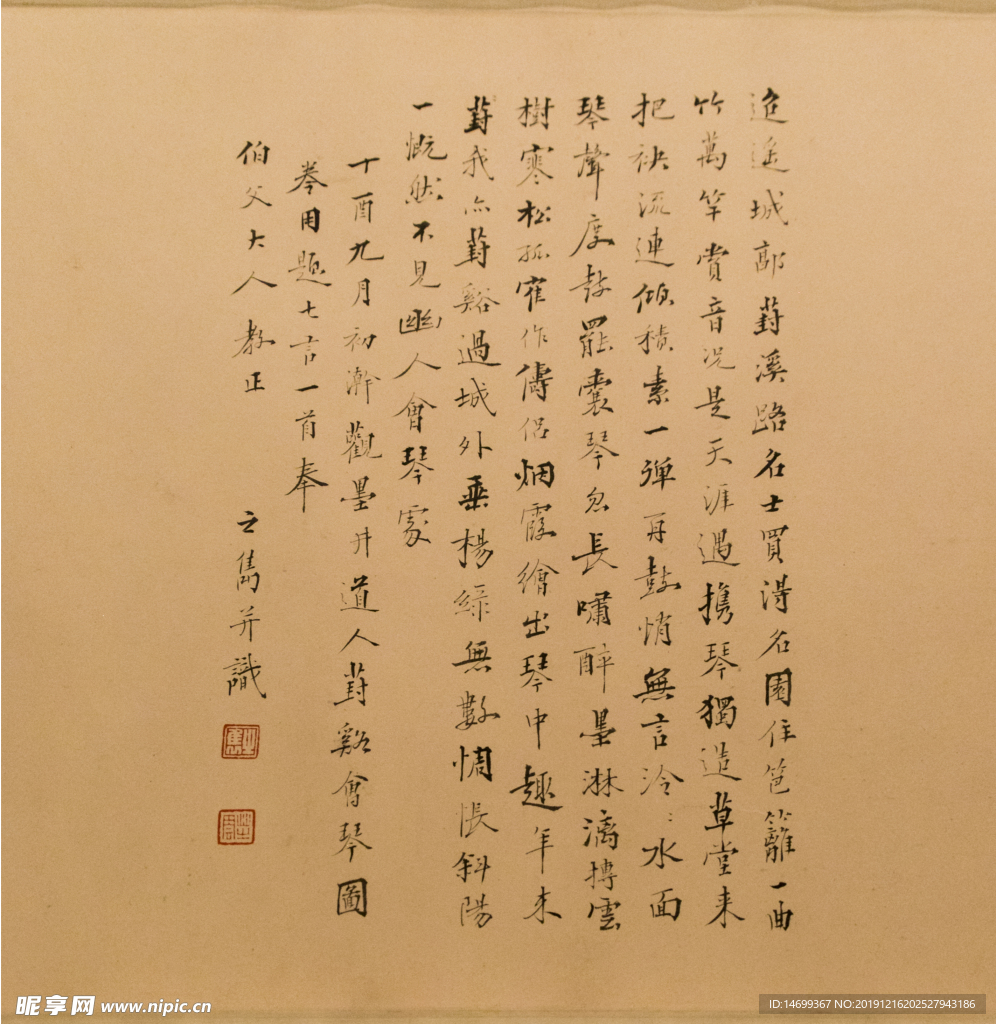 迤逶城郭葑溪路名士買得名園住笆籬一曲
竹萬竿賞音况是天涯遇攜琴獨造草堂来
把袂流連傾積素一彈再鼓悄無言泠〻水面
琴聲度鼓罷囊琴忽長嘯醉墨淋漓摶雲
樹寒松孤隺作儔侣烟霞繪出琴中趣年来
葑我亦葑谿過城外垂楊緑無數惆悵斜陽
一慨然不見幽人會琴處
丁酉九月初澣觀墨井道人葑谿會琴圖
拳用題七言一首奉
伯父大人教正
之雋并識
昵享网 www.nipic.cn
ID:14699367 NO:20191216202527943186